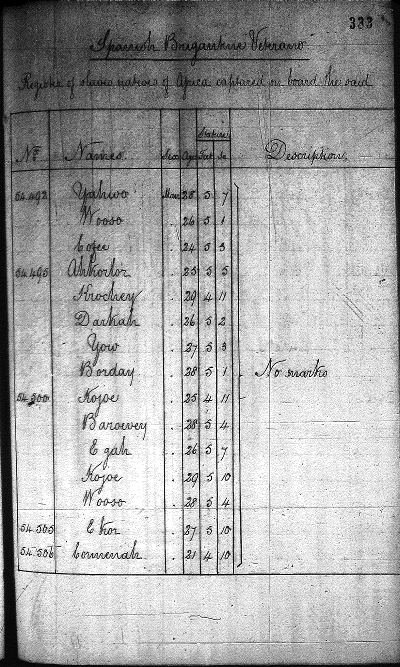 333
Spanish Brigantine Veterano
Register of slaves natives of Africa captured on board the said
Stature
No. Names. Sex Age Feet In Description
54.492 Yahwo Man 28 5 7
Wooso . 26 5 1
Cojee . 24 5 3
54.495 Ahkorlor . 25 5 5
Krochey . 29 4 11
Darkah . 26 5 2
Yow . 27 5 3
Borday . 28 5 1 No marks
54.500 Kojoe . 25 4 11
Barowey . 28 5 4
Egah . 26 5 7
Kojoe . 29 5 10
Wooso . 28 5 4
54.505 Ekor . 27 5 10
54.506 Commenah . 21 4 10